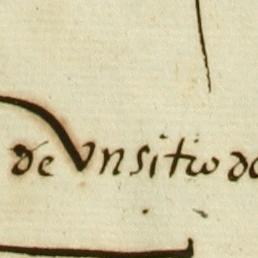 de vnsitio de